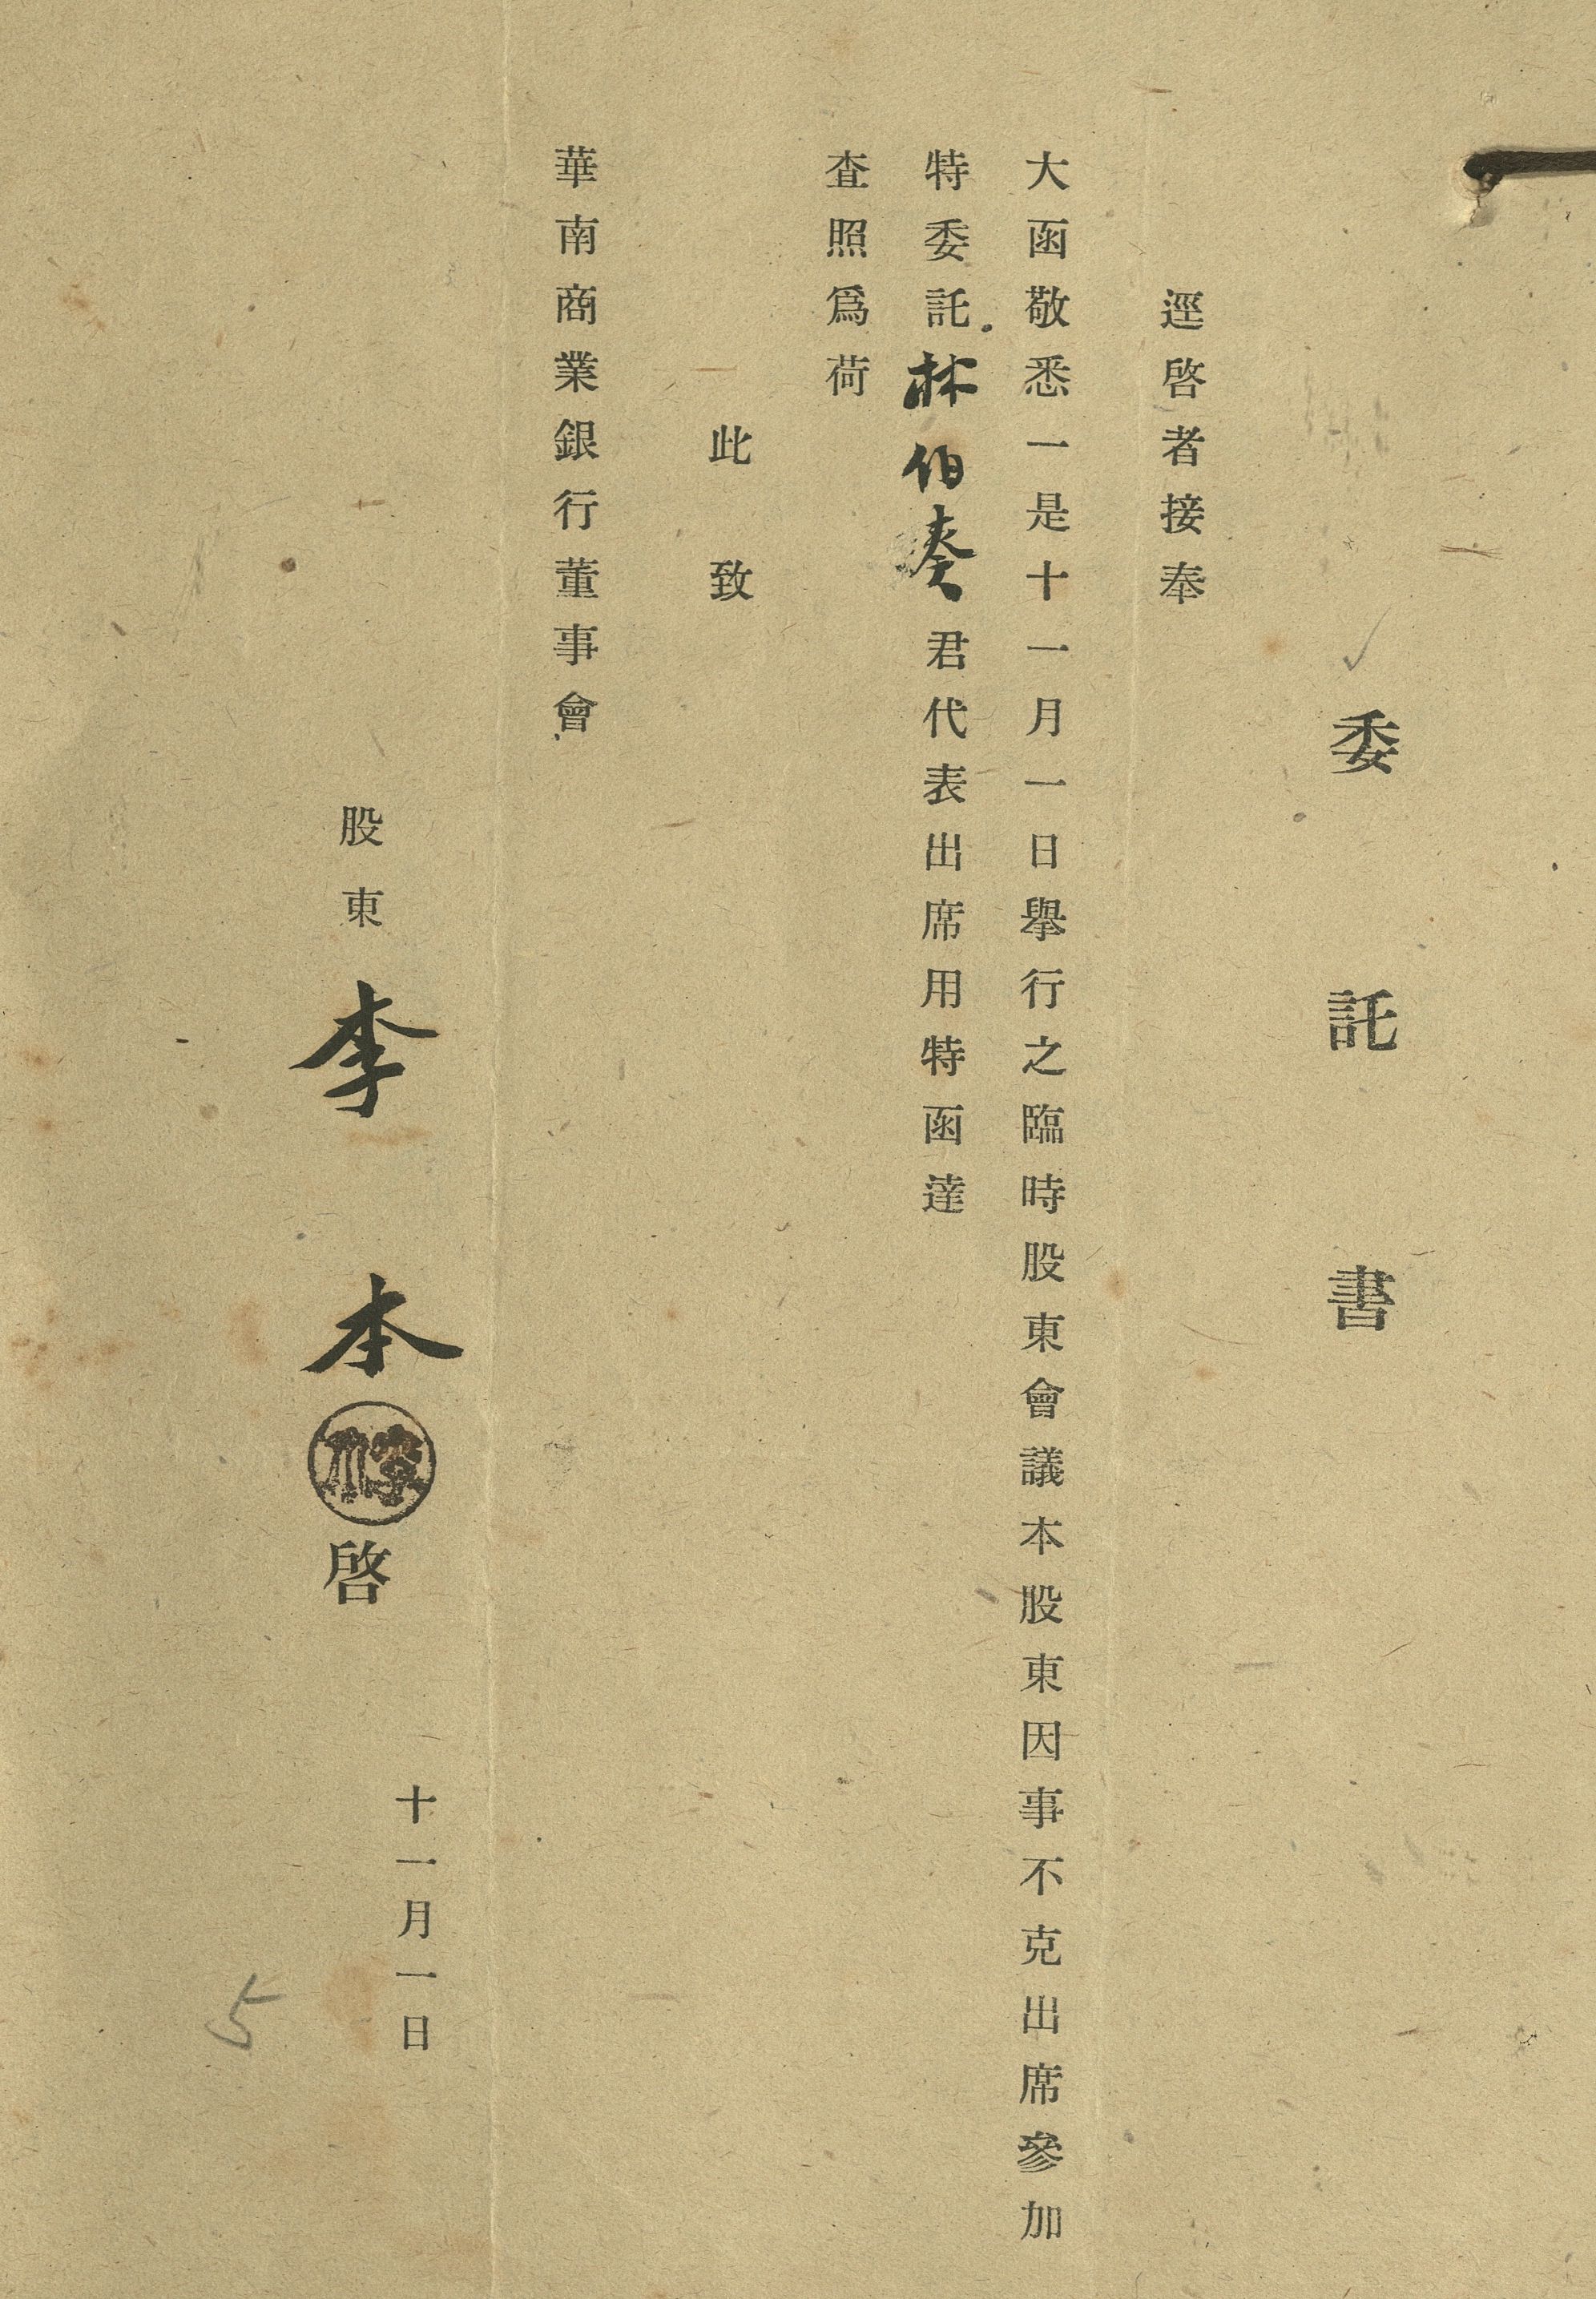 委託書
逕啓者接奉
大函敬悉一是十一月一日擧行之臨時股東會議本股東因事不克出席參加
特委託林伯奏君代表出席用特函達
査照爲荷
此致
華南商業銀行董事會
股東 李本 啓
十一月一日
5